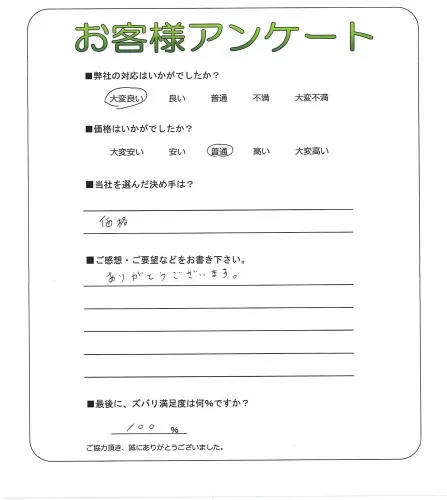 お客様アンケート
■弊社の対応はいかがでしたか？
大変良い 良い 普通 不満 大変不満
■価格はいかがでしたか？
大変安い 安い 普通 高い 大変高い
■当社を選んだ決め手は？
価格
■ご感想・ご要望などをお書き下さい。
ありがとうございます。
■最後に、ズバリ満足度は何％ですか？
100 ％
ご協力頂き、誠にありがとうございました。